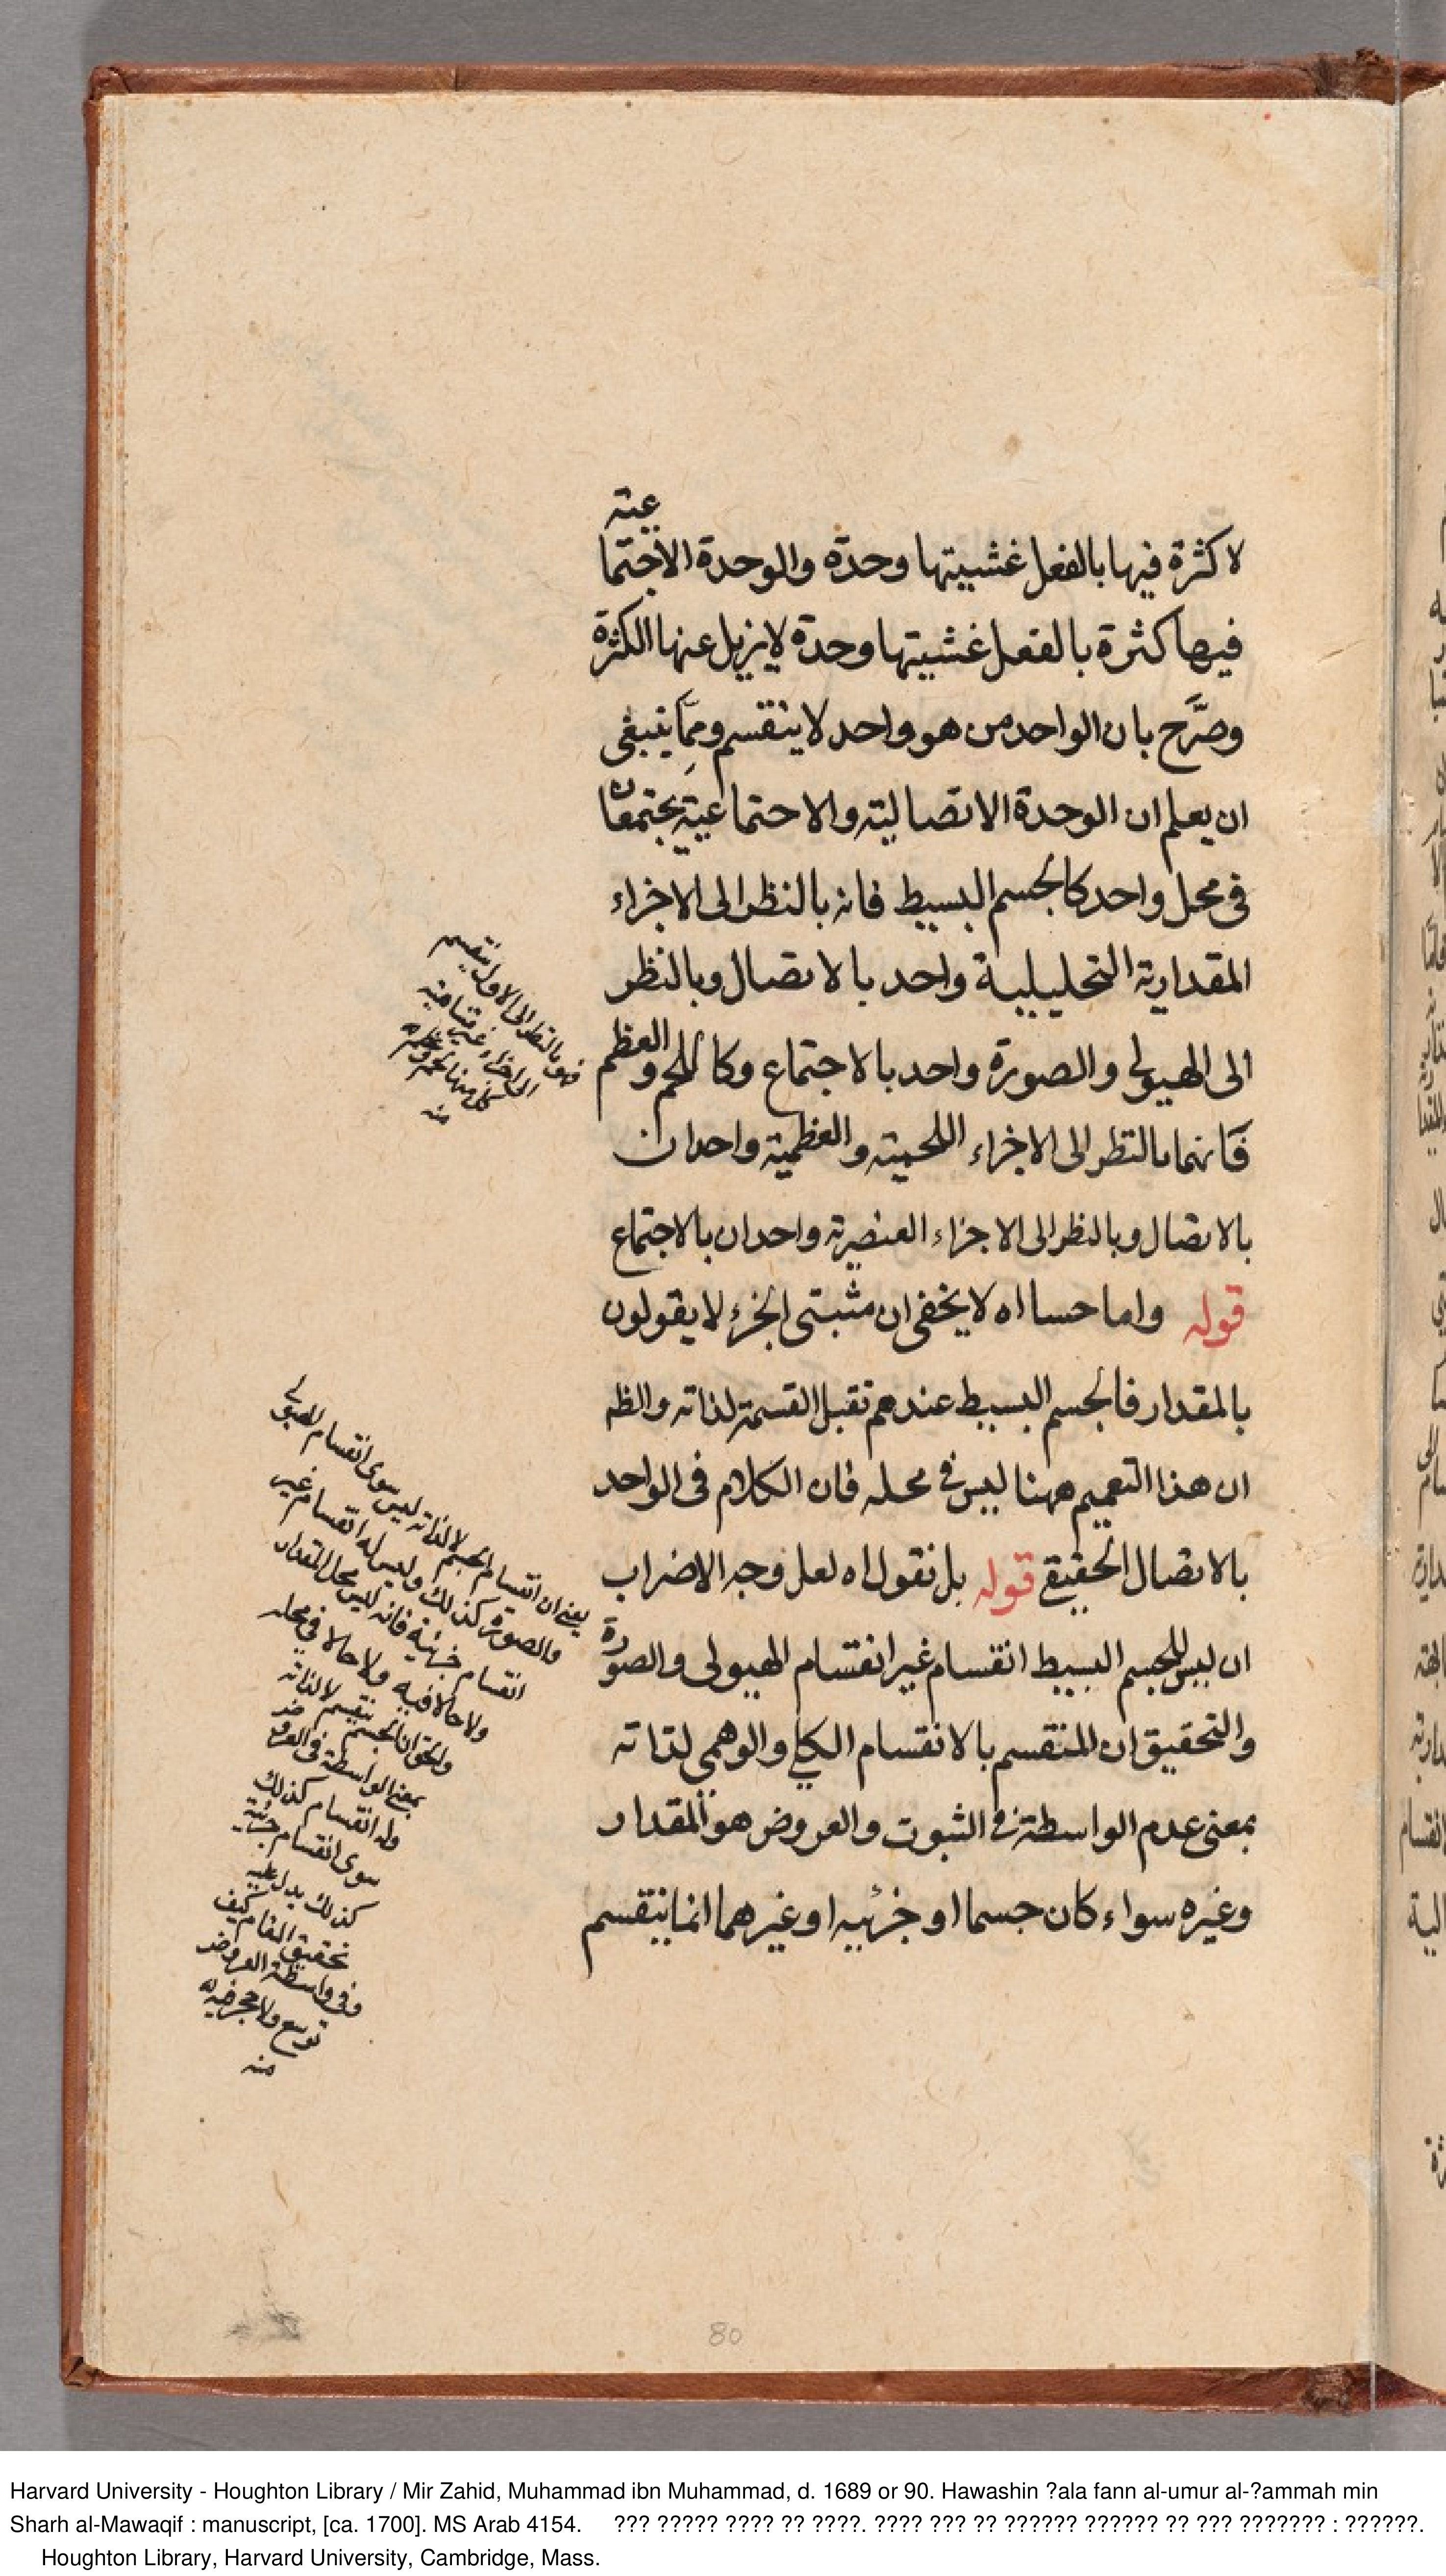 لا كثرة فيها بالفعل غشيتها وحدة والوحدة الاجتماعية
فيها كثرة بالفعل غشيتها وحدة لا يزيل عنها الكثرة
وصرَّح بان الواحد من هو واحد لا ينقسم وممَّا ينبغى
ان يعلم ان الوحدة الاتصالية والاجتماعية يجتمعان
فى محل واحد كالجسم البسيط فانه بالنظر الى الاجزاء
المقدارية التحليلية واحد بالاتصال وبالنظر
الى الهيولى والصورة واحد بالاجتماع وكاللحم والعظم
فانهما بالنظر الى الاجزاء اللحمية والعظمية واحدان
بالاتصال وبالنظر الى الاجزاء العنصرية واحدان بالاجتماع
قوله واما حسا اه لا يخفى ان مثبتى الجزء لا يقولون
بالمقدار فالجسم البسيط عندهم تقبل القسمة لذاته والظ
ان هذا التعميم ههنا ليس فى محله فان الكلام فى الواحد
بالاتصال الحقيقى قوله بل نقول اه لعل وجه الاضراب
ان ليس للجسم البسيط انقسام غير انقسام الهيولى والصورة
والتحقيق ان المنقسم بالانقسام الكلى والوهمى لذاته
بمعنى عدم الواسطة فى الثبوت والعروض هو المقدار
وغيره سواء كان جسما او جزئيه او غيرهما انما ينقسم
فهو بالنظر الى الاول ينقسم
الى اجزاء غير متناهية
كل منها
منه
يعنى ان انقسام الجسم لا لذاته ليس سوى انقسام الهيولى
والصورة كذلك وليس له انقسام غير
انقسام جزئية فانه ليس محل المقدار
ولا حالا فيه ولا حالا فى محله
والحق ان الجسم ينقسم لا لذاته
بمعنى الواسطة فى العروض
وله انقسام كذلك
سوى انقسام جزئية
كذلك يدل عليه
تحقيق المقام كيف
وفى واسطة العروض
توسع ولا
منه
80
Harvard University - Houghton Library / Mir Zahid, Muhammad ibn Muhammad, d. 1689 or 90. Hawashin ?ala fann al-umur al-?ammah min
Sharh al-Mawaqif : manuscript, [ca. 1700]. MS Arab 4154. ??? ????? ???? ?? ????. ???? ??? ?? ?????? ?????? ?? ??? ??????? : ??????.
Houghton Library, Harvard University, Cambridge, Mass.